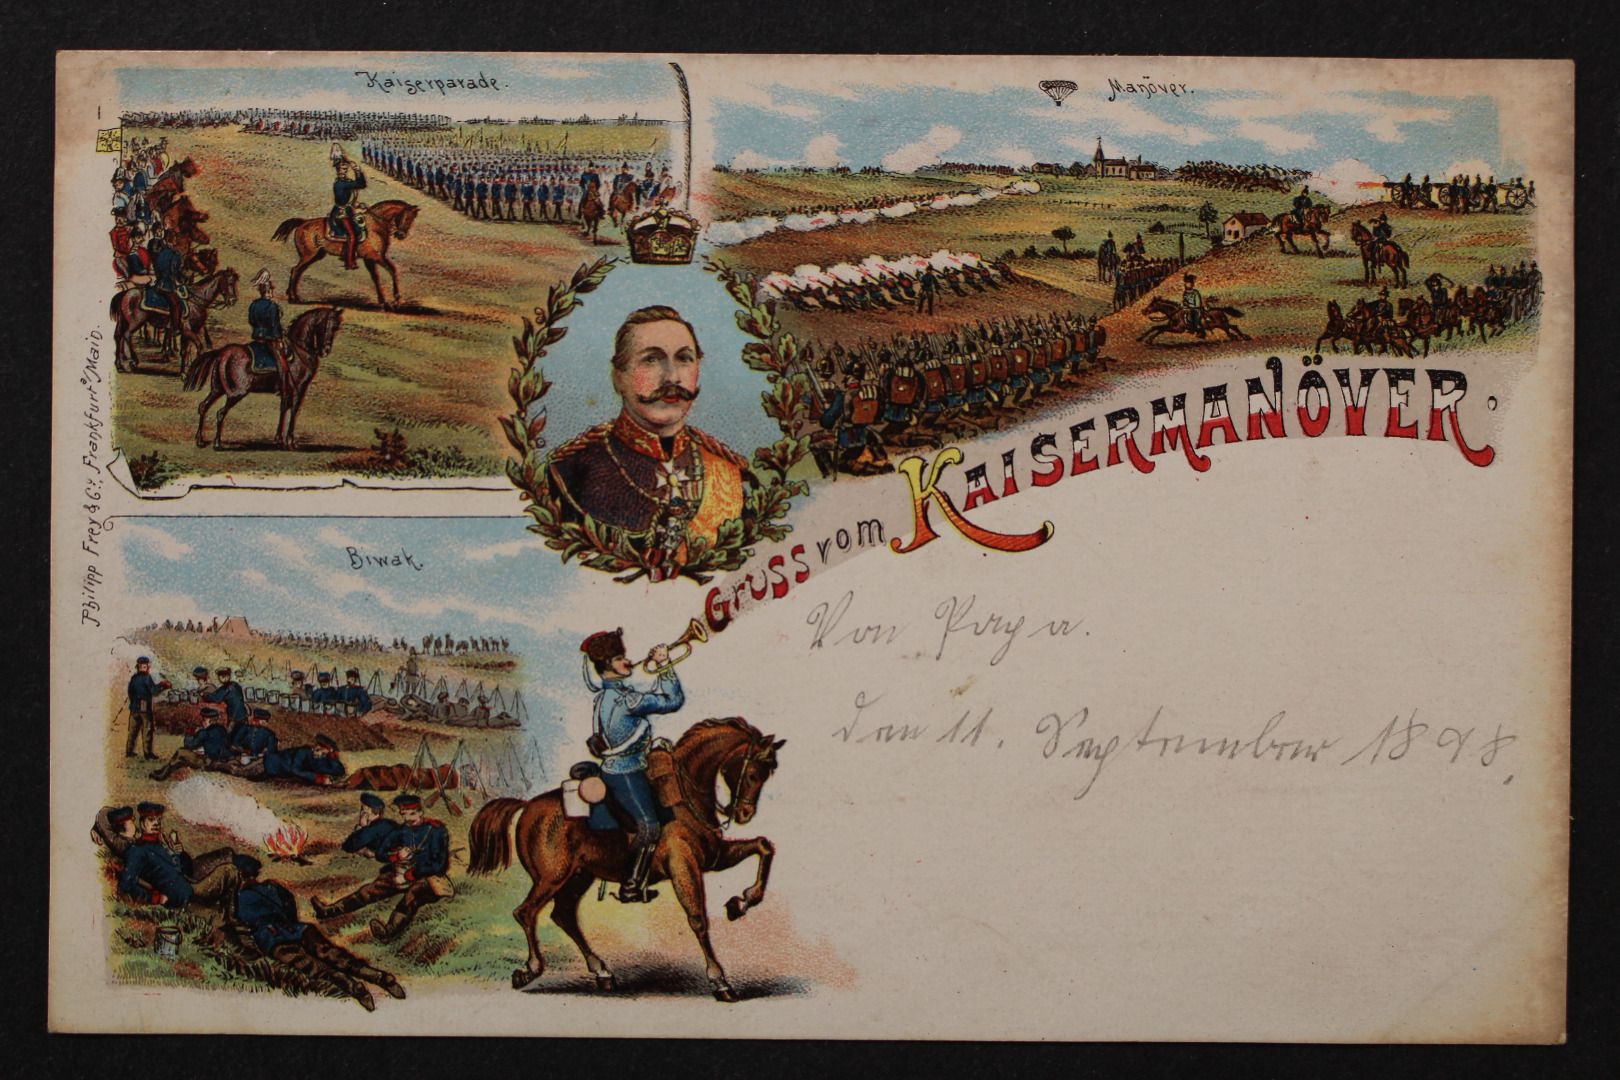 Kaiserparade.
Manöver.
Gruss vom KAISERMANÖVER.
Biwak.
Philipp Frey & Co., Frankfurt a/Main.
Von Papa.
den 11. September 1898.